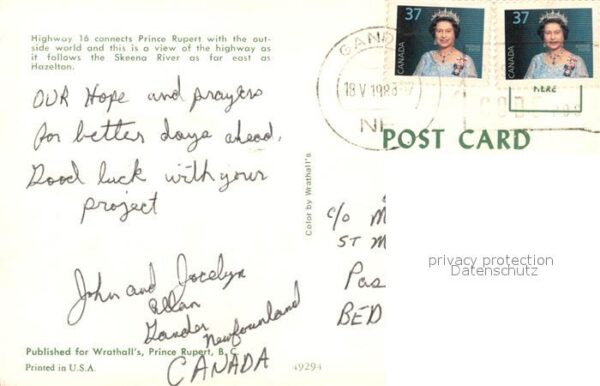 Highway 16 connects Prince Rupert with the out-
side world and this is a view of the highway as
it follows the Skeena River as far east as
Hazelton.
37
CANADA
37
CANADA
HERE
POST CARD
OUR Hope and prayers
for better days ahead.
Good luck with your
project
John and Jocelyn
Allan
Gander
Newfounland
CANADA
Color by Wrathall's
c/o M
ST M
Pas
BED
privacy protection
Datenschutz
Published for Wrathall's, Prince Rupert, B. C.
Printed in U.S.A.
49294